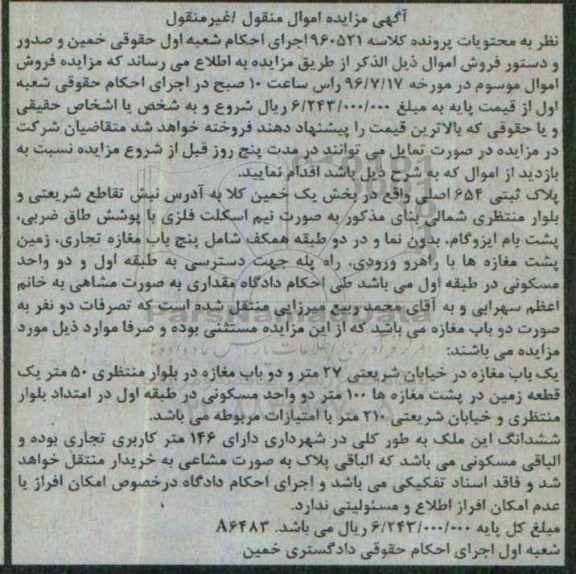 آگهی مزایده اموال منقول /غیرمنقول
نظر به محتویات پرونده کلاسه ۹۶۰۵۲۱ اجرای احکام شعبه اول حقوقی خمین و صدور
و دستور فروش اموال ذیل الذکر از طریق مزایده به اطلاع می رساند که مزایده فروش
اموال موسوم در مورخه ۹۶/۷/۱۷ راس ساعت ۱۰ صبح در اجرای احکام حقوقی شعبه
اول از قیمت پایه به مبلغ ۶/۲۴۳/۰۰۰/۰۰۰ ریال شروع و به شخص یا اشخاص حقیقی
و یا حقوقی که بالاترین قیمت را پیشنهاد دهند فروخته خواهد شد متقاضیان شرکت
در مزایده در صورت تمایل می توانند در مدت پنج روز قبل از شروع مزایده نسبت به
بازدید از اموال که به شرح ذیل باشد اقدام نمایند.
پلاک ثبتی ۶۵۴ اصلی واقع در بخش یک خمین کلا به آدرس نبش تقاطع شریعتی و
بلوار منتظری شمالی بنای مذکور به صورت نیم اسکلت فلزی با پوشش طاق ضربی،
پشت بام ایزوگام، بدون نما و در دو طبقه همکف شامل پنج باب مغازه تجاری، زمین
پشت مغازه ها با راهرو ورودی، راه پله جهت دسترسی به طبقه اول و دو واحد
مسکونی در طبقه اول می باشد طی احکام دادگاه مقداری به صورت مشاهی به خانم
اعظم سهرابی و به آقای محمد ربیع میرزایی منتقل شده است که تصرفات دو نفر به
صورت دو باب مغازه می باشد که از این مزایده مستثنی بوده و صرفا موارد ذیل مورد
مزایده می باشند:
یک باب مغازه در خیابان شریعتی ۲۷ متر و دو باب مغازه در بلوار منتظری ۵۰ متر یک
قطعه زمین در پشت مغازه ها ۱۰۰ متر دو واحد مسکونی در طبقه اول در امتداد بلوار
منتظری و خیابان شریعتی ۲۱۰ متر با امتیازات مربوطه می باشد.
ششدانگ این ملک به طور کلی در شهرداری دارای ۱۴۶ متر کاربری تجاری بوده و
الباقی مسکونی می باشد که الباقی پلاک به صورت مشاعی به خریدار منتقل خواهد
شد و فاقد اسناد تفکیکی می باشد و اجرای احکام دادگاه درخصوص امکان افراز یا
عدم امکان افراز اطلاع و مسئولیتی ندارد.
مبلغ کل پایه ۶/۲۴۳/۰۰۰/۰۰۰ ریال می باشد. A۶۴۸۳
شعبه اول اجرای احکام حقوقی دادگستری خمین